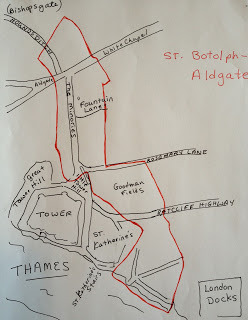 Bishopsgate
HOUNDSDITCH
White Chapel
ST. Botolph-
Aldgate
Aldgate
THE Minories
Fountain
Lane
ROSEMARY LANE
Great
Tower Hill
Little
Tower
Hill
Goodman
Fields
TOWER
RATCLIFF HIGHWAY
ST.
Katharine's
THAMES
St. Katharine's
Stairs
London
Docks